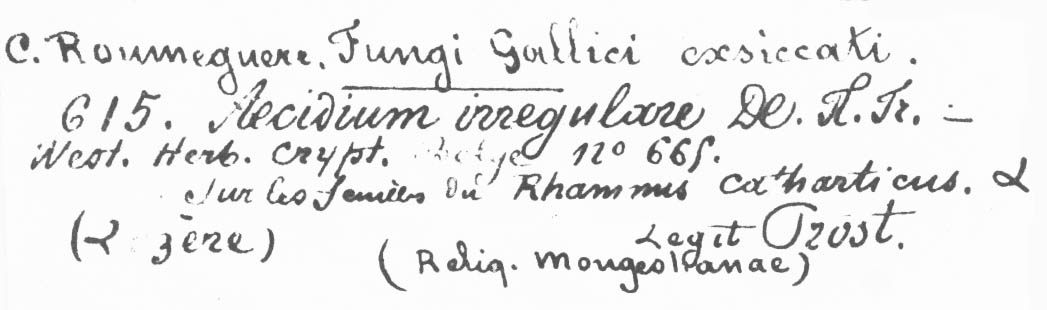 C. Roumeguere. Fungi Gallici exsiccati.
615. Aecidium irregulare De. Fl. Fr. –
West. Herb. Crypt. Belge n° 665.
Sur les feuilles du Rhamnus catharticus.
(Lozère) Legit Prost.
(Reliq. Mougeotianae)